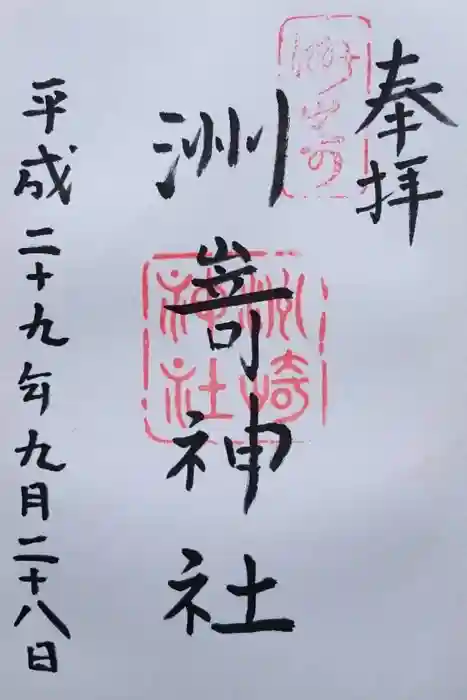 奉拝
洲嵜神社
平成二十九年九月二十八日
洲崎
神社